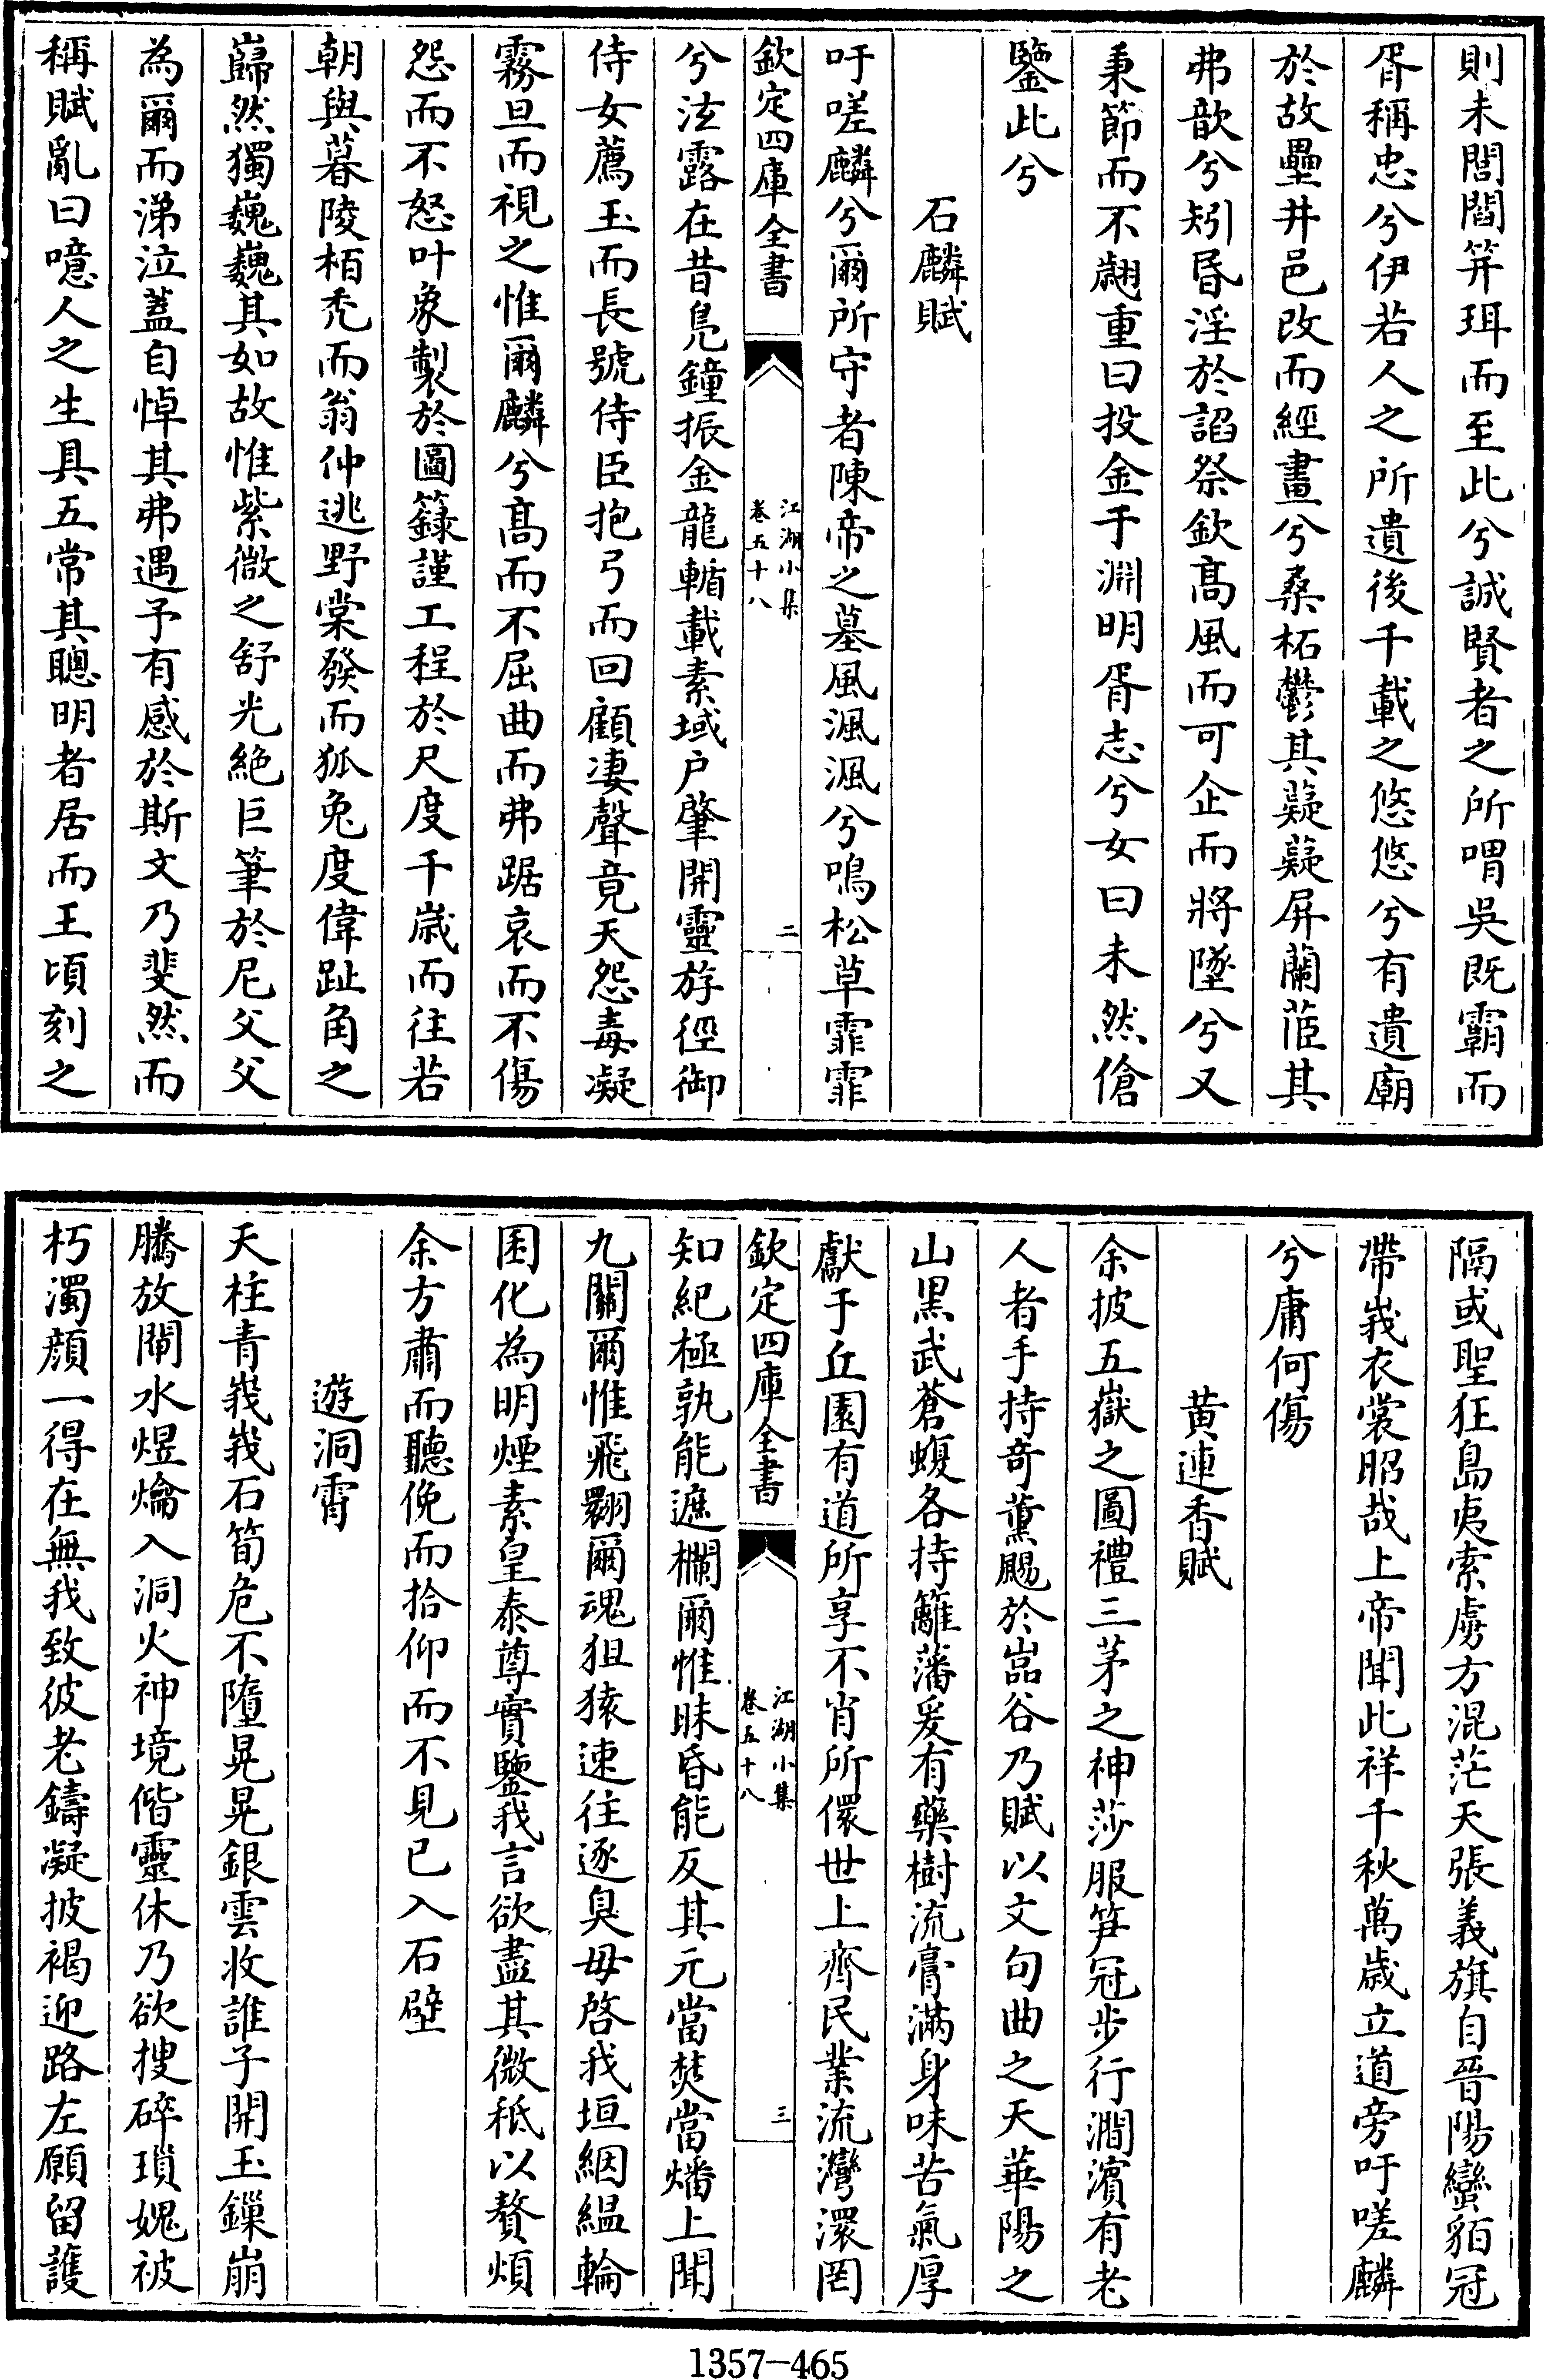 則未閭閻笄珥而至此兮誠賢者之所喟吳既霸而
胥稱忠兮伊若人之所遺後千載之悠悠兮有遺廟
於故壘井邑改而經畫兮桑柘鬱其薿薿屏蘭茝其
弗歆兮矧昏淫於諂祭欽高風而可企而將墜兮又
秉節而不翽重曰投金于淵明胥志兮女曰未然傖
鑒此兮
石麟賦
吁嗟麟兮爾所守者陳帝之墓風渢渢兮鳴松草霏霏
欽定四庫全書
江湖小集
卷五十八
二
兮泫露在昔鳧鐘振金龍輴載素域户肇開靈斿徑御
侍女薦玉而長號侍臣抱弓而回顧凄聲竟天怨毒凝
霧旦而視之惟爾麟兮高而不屈曲而弗踞哀而不傷
怨而不怒叶象製於圖籙謹工程於尺度千歲而往若
朝與暮陵栢禿而翁仲逃野棠發而狐兔度偉趾角之
巋然獨巍巍其如故惟紫微之舒光絶巨筆於尼父父
為爾而涕泣蓋自悼其弗遇予有感於斯文乃斐然而
稱賦亂曰噫人之生具五常其聰明者居而王頃刻之
隔或聖狂島夷索虜方混茫天張義旗自晉陽蠻貊冠
帶峩衣裳昭哉上帝聞此祥千秋萬歲立道旁吁嗟麟
兮庸何傷
黄連香賦
余披五嶽之圖禮三茅之神莎服笋冠步行澗濱有老
人者手持奇薰賜於嵓谷乃賦以文句曲之天華陽之
山黑武蒼蝮各持籬藩爰有藥樹流膏滿身味苦氣厚
獻于丘園有道所享不肖所儇世上齊民業流灣澴罔
欽定四庫全書
江湖小集
卷五十八
三
知紀極孰能遮欄爾惟昧昏能反其元當焚當燔上聞
九關爾惟飛翾爾魂狙猿速往逐臭毋啓我垣絪緼輪
囷化為明煙素皇泰尊實鑒我言欲盡其微秪以贅煩
余方肅而聽俛而拾仰而不見已入石壁
遊洞霄
天柱青峩峩石筍危不墮晃晃銀雲收誰子開玉鏁崩
騰放閘水煜爚入洞火神境偕靈休乃欲捜碎瑣媿被
朽濁顔一得在無我致彼老鑄凝披褐迎路左願留護
1357-465